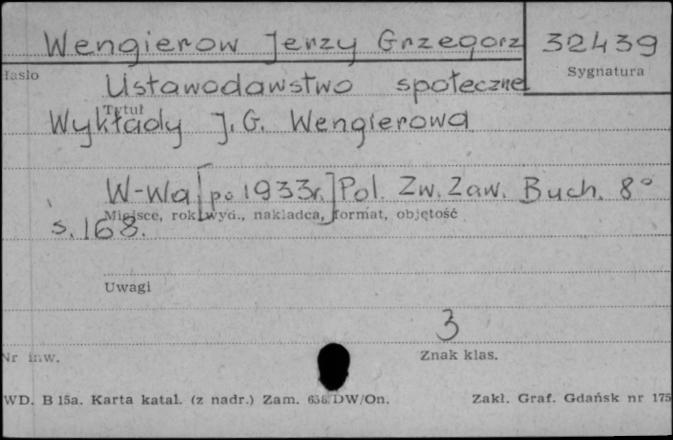 Wengierow Jerzy Grzegorz 32439
Hasło Sygnatura
Ustawodawstwo społeczne
Tytuł
Wykłady J.G. Wengierowa
W-wa [po 1933r.] Pol. Zw. Zaw. Buch. 8°
Miejsce, rok wyd., nakładca, format, objętość
s. 168.
Uwagi
3
Nr inw. Znak klas.
WD. B 15a. Karta katal. (z nadr.) Zam. DW/On. Zakł. Graf. Gdańsk nr 175